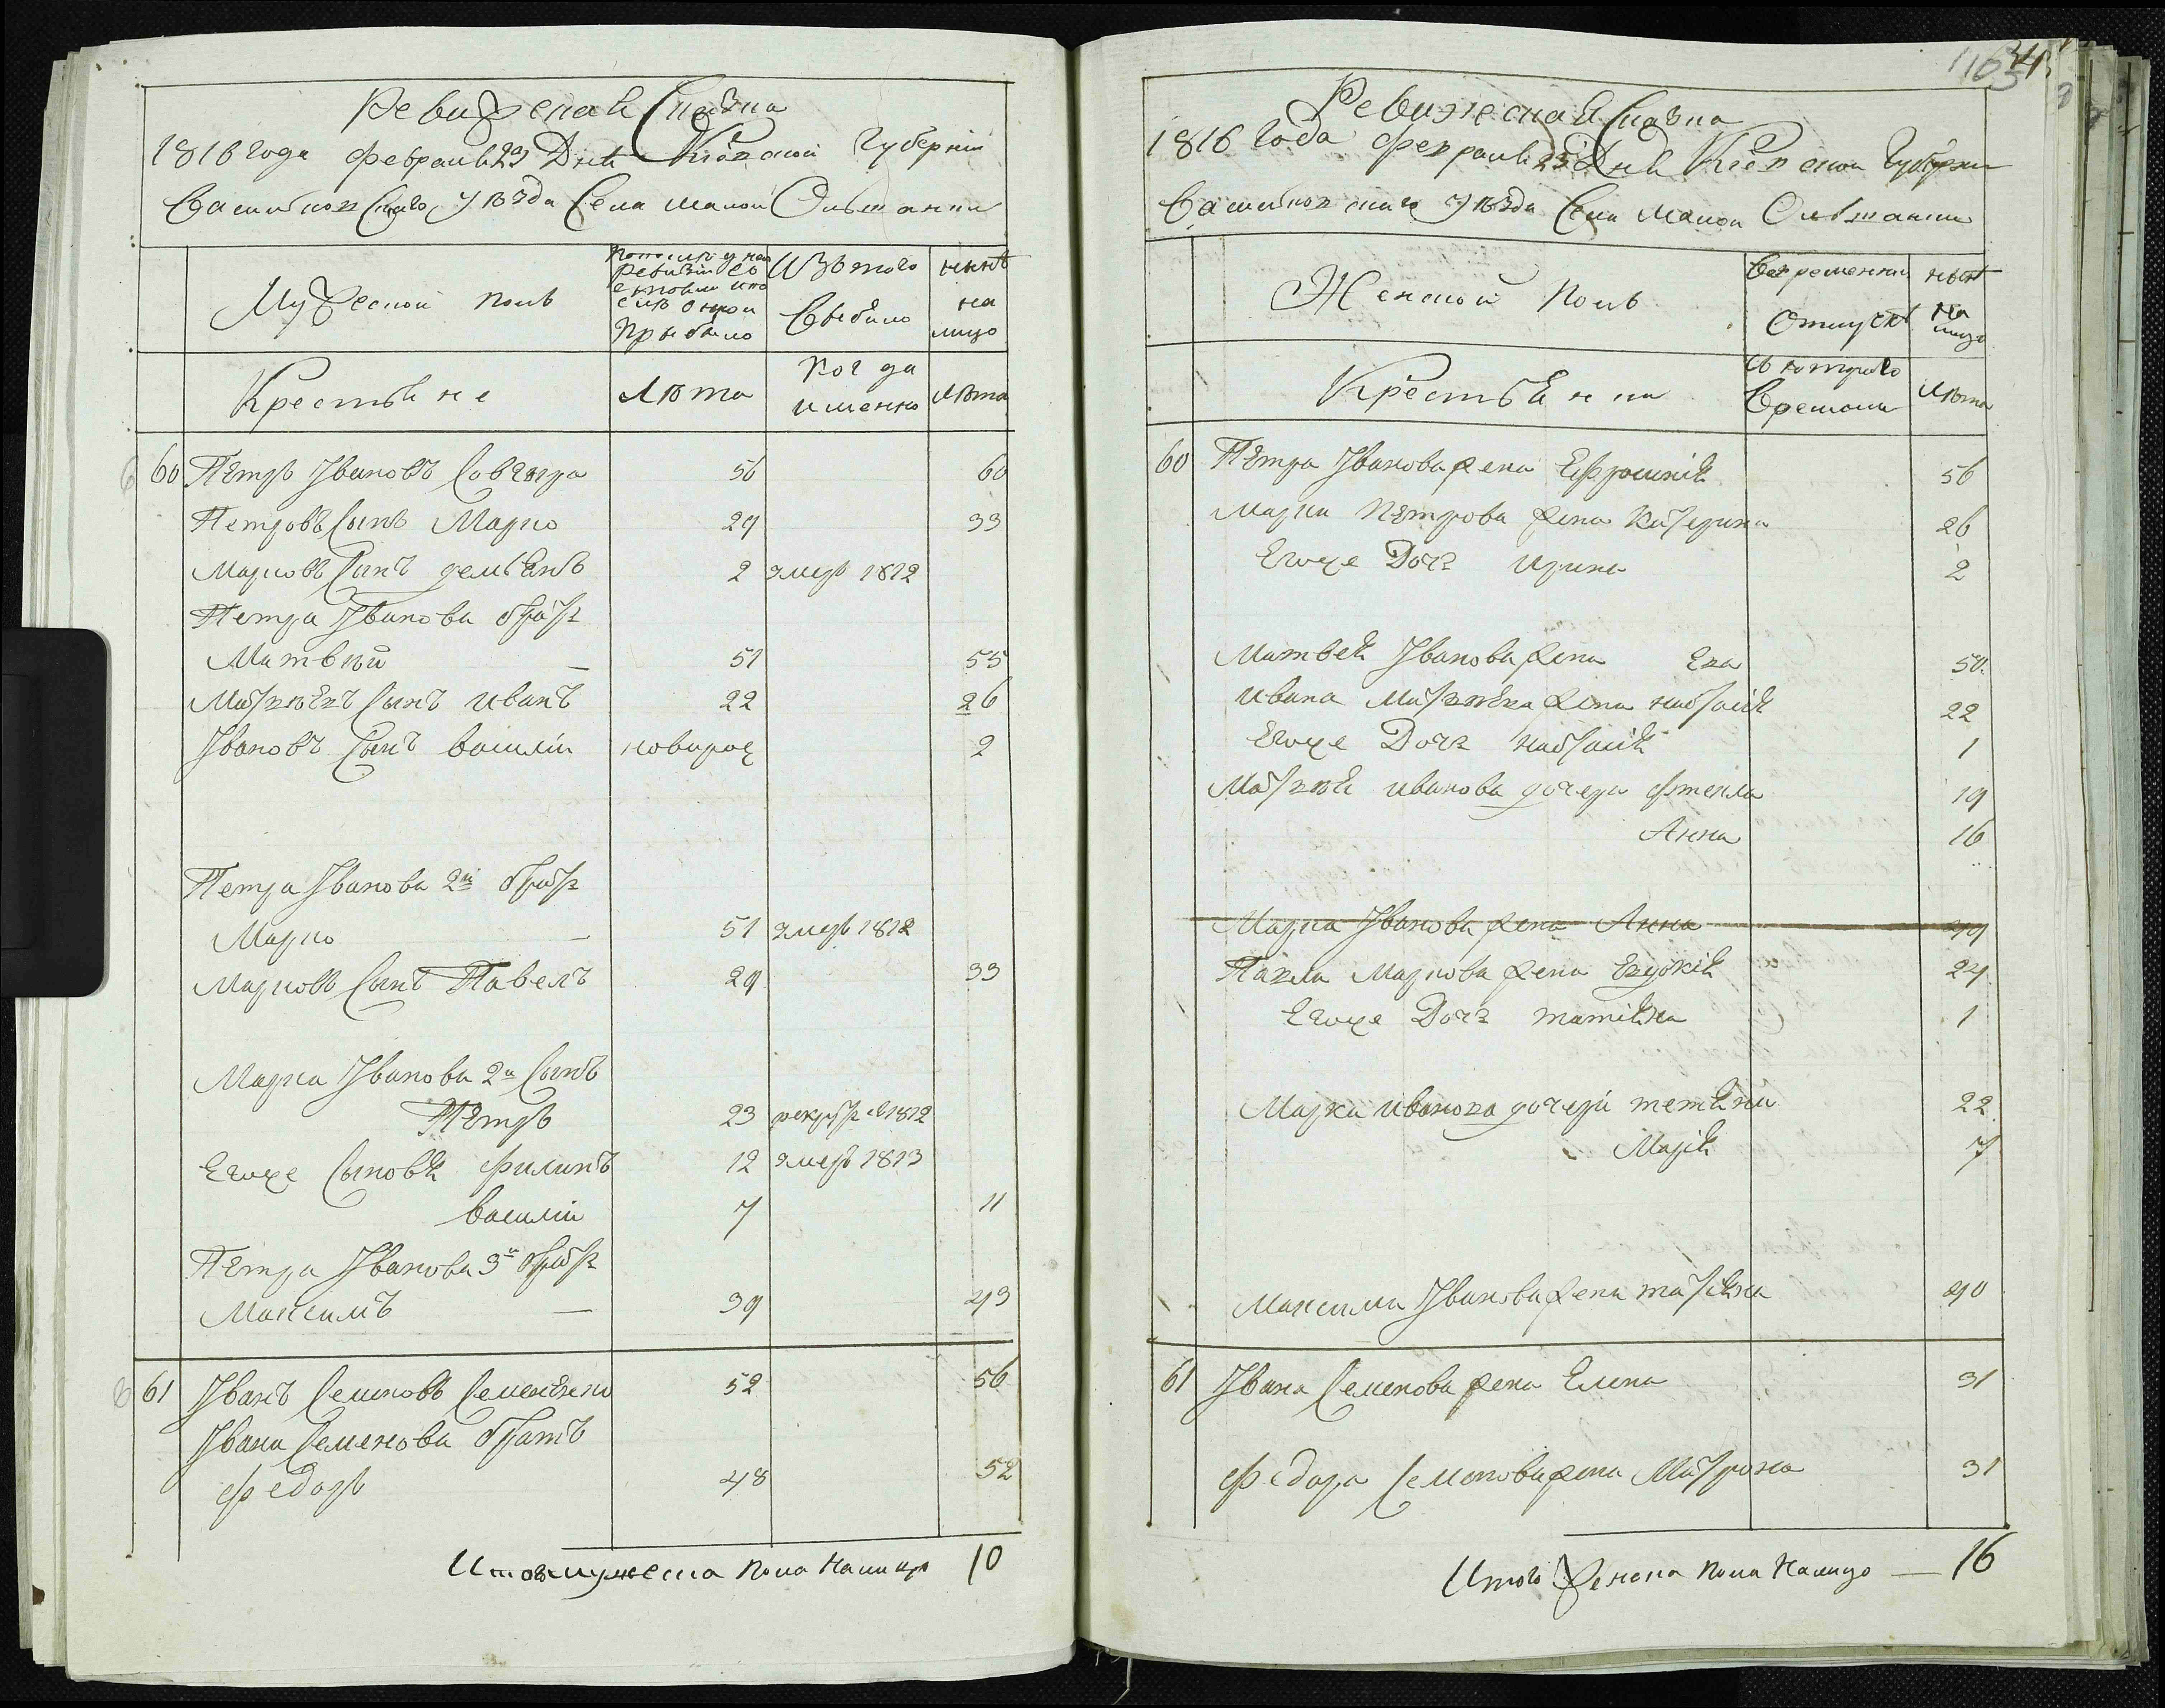 Ревижская Сказка
1816 года февраля 23 Дня Кіевской Губерніи
Васильковскаго уѣзда Села Малой Ольшанки
Мужеской полъ
По последней ревизіи состояло и после оной прыбыло
Изъ того Выбыло
нынѣ на лицо
Крестьяне
Лѣта
Когда именно
Лѣта
60 Петръ Івановъ 56 60
Петровъ Сынъ Марко 29 33
Марковъ Сынъ демьянъ 2 умеръ 1812
Петра Іванова братъ
Матвѣй — 51 55
Матвѣевъ Сынъ иванъ 22 26
Івановъ Сынъ василій новорож 2
Петра Іванова 2й братъ
Марко — 51 умеръ 1812
Марковъ Сынъ Павелъ 29 33
Марка Іванова 2й Сынъ
Петръ 23 рекрут в 1812
Егоже Сыновя филипъ 12 умеръ 1813
василій 7 11
Петра Іванова 3й братъ
Максимъ — 39 43
61 Іванъ Семеновъ Семененко 52 56
Івана Семенова братъ
федоръ 48 52
Итого мужеска пола налицо 10
1163
Ревижская Сказка
1816 года февраля 23 Дня Кіевской Губерніи
Васильковскаго уѣзда Села Малой Ольшанки
Женской полъ
Вовременной Отлучкѣ
нынѣ на лицо
Крестьянки
Скотораго Времени
Лѣта
60 Петра Іванова жена Ефросинія 56
Марка Петрова жена Катерина 26
Егоже Дочъ Ирина 2
Матвея Іванова жена Ева 50
Ивана Матвѣева жена наталія 22
Егоже Дочъ наталія 1
Матвѣя иванова дочери фтекла 19
Анна 16
Марка Іванова жена Анна 49
Павла Маркова жена Евдокія 24
Егоже Дочъ татияна 1
Марка иванова дочери тетяна 22
Марія 7
Максима Іванова жена татияна 40
61 Івана Семенова жена Елена 31
Федора Семенова жена Матрона 31
Итого женска пола налицо — 16